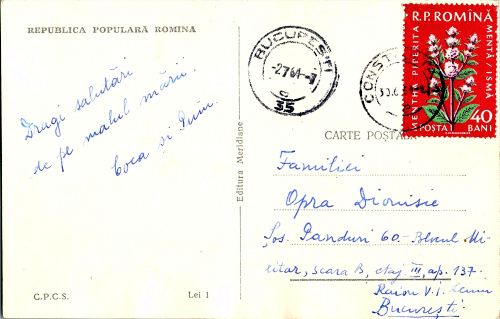 REPUBLICA POPULARĂ ROMÎNĂ
Dragi salutări
de pe malul mării.
Coca si
C.P.C.S.
Lei 1
Editura Meridiane
BUCUREȘTI
-2764-
35
CONST
R.P. ROMÎNA
MENTHA PIPERITA
MENTA/ISMA
POSTA
40
BANI
CARTE POȘTALĂ
Familiei
Opra Dionisie
Șos. Panduri 60-Blocul Mi-
litar, scara B, etaj III, ap. 137.
Raion V. I. Lenin
București